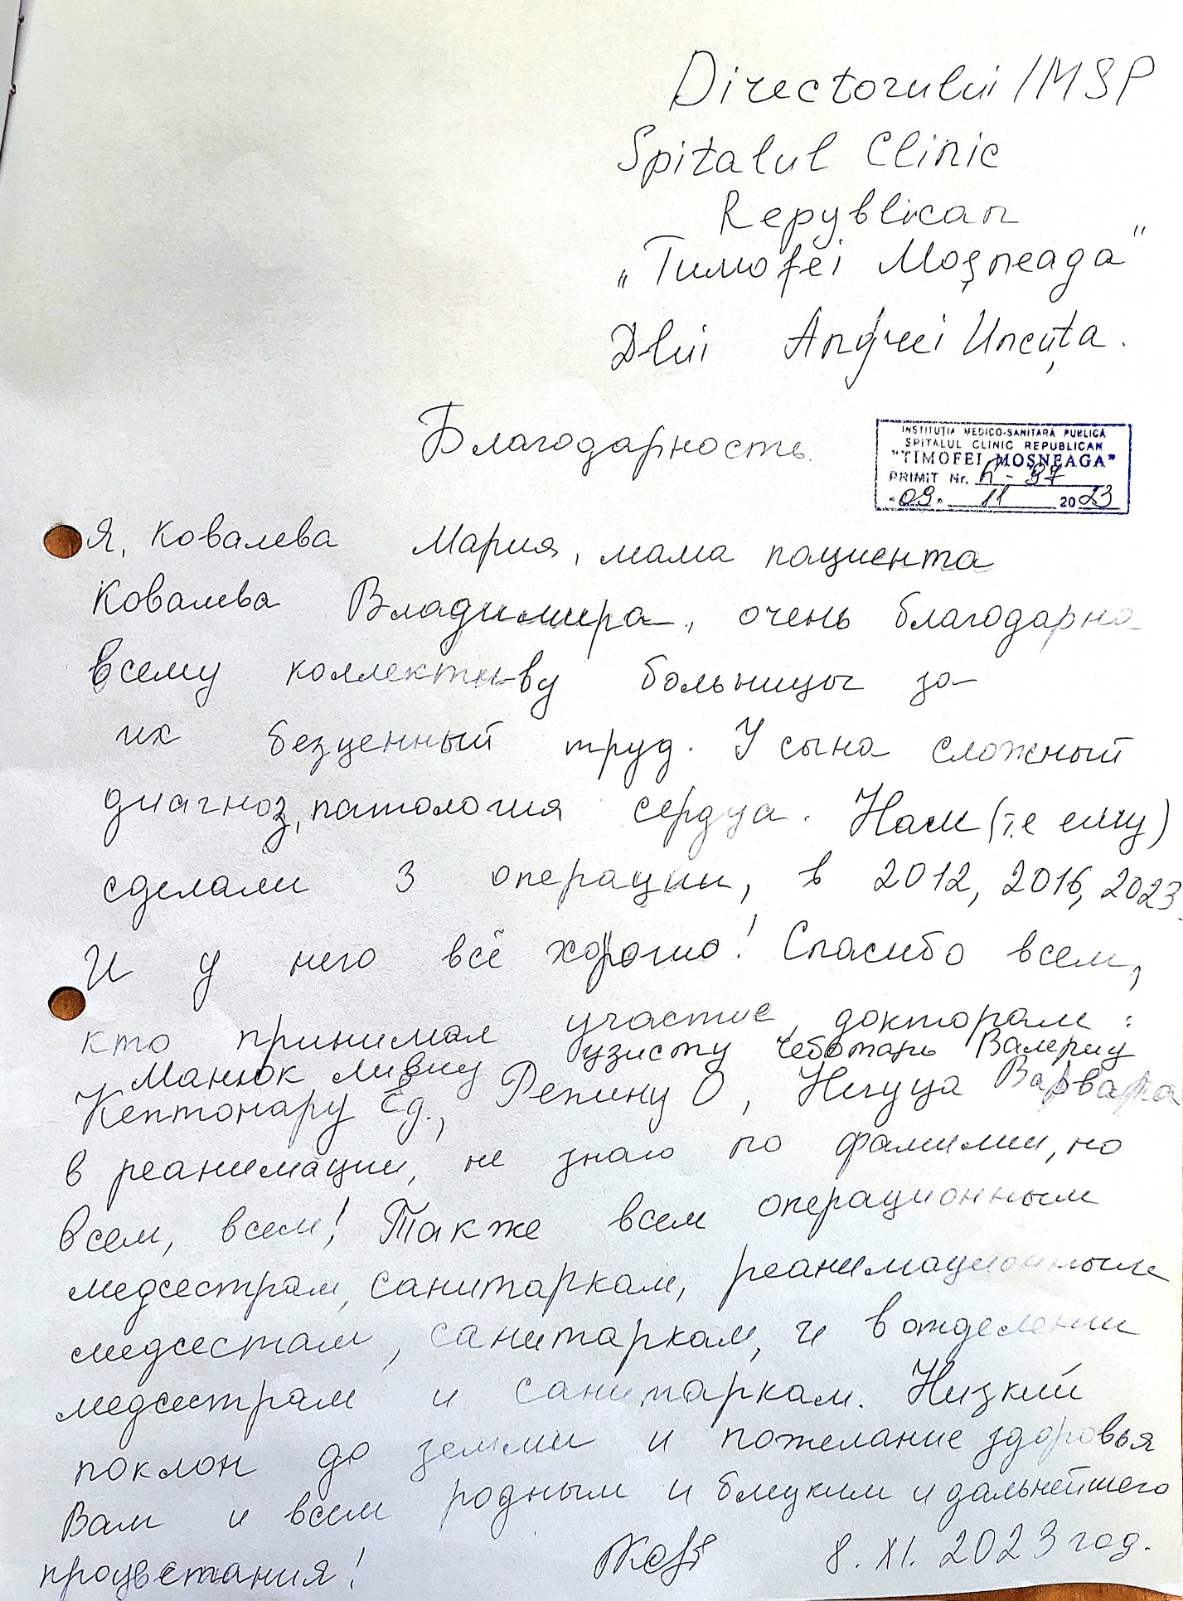 Directorului IMSP
Spitalul Clinic
Republican
„Timofei Moșneaga"
Dlui Andrei Uncuța.
Благодарность.
INSTITUȚIA MEDICO-SANITARĂ PUBLICĂ
SPITALUL CLINIC REPUBLICAN
"TIMOFEI MOȘNEAGA"
PRIMIT Nr. K-97
"09" 11 2023
Я, Ковалева Мария, мама пациента
Ковалева Владимира, очень благодарна
всему коллективу больницы за
их безценный труд. У сына сложный
диагноз, патология сердца. Нам (т.е ему)
сделали 3 операции, в 2012, 2016, 2023.
И у него всё хорошо! Спасибо всем,
кто принимал участие, докторам:
Манюк Ливиу узисту Чеботарь Валериу
Кептонару Ед., Репину О, Нигуца Варвара
в реанимации, не знаю по фамилии, но
всем, всем! Также всем операционным
медсестрам, санитаркам, реанимационным
медсестам, санитаркам, и в отделении
медсестрам и санитаркам. Низкий
поклон до земли и пожелание здоровья
Вам и всем родным и близким и дальнейшего
процветания!
8. XI. 2023 год.